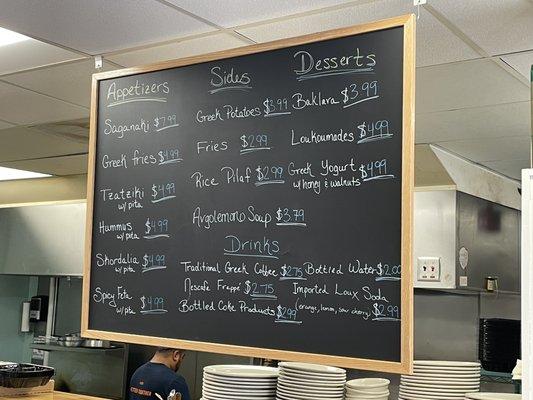 Appetizers
Saganaki $7.99
Greek fries $4.99
Tzatziki $4.99
w/ pita
Hummus $4.99
w/ pita
Skordalia $4.99
w/ pita
Spicy Feta $4.99
w/ pita
Sides
Greek Potatoes $3.99
Fries $2.99
Rice Pilaf $2.99
Avgolemono Soup $3.79
Desserts
Baklava $3.99
Loukoumades $4.99
Greek Yogurt $4.99
w/ honey & walnuts
Drinks
Traditional Greek Coffee $2.75
Nescafe Frappé $2.75
Bottled Coke Products $2.99
Bottled Water $2.00
Imported Loux Soda
(orange, lemon, sour cherry) $2.99